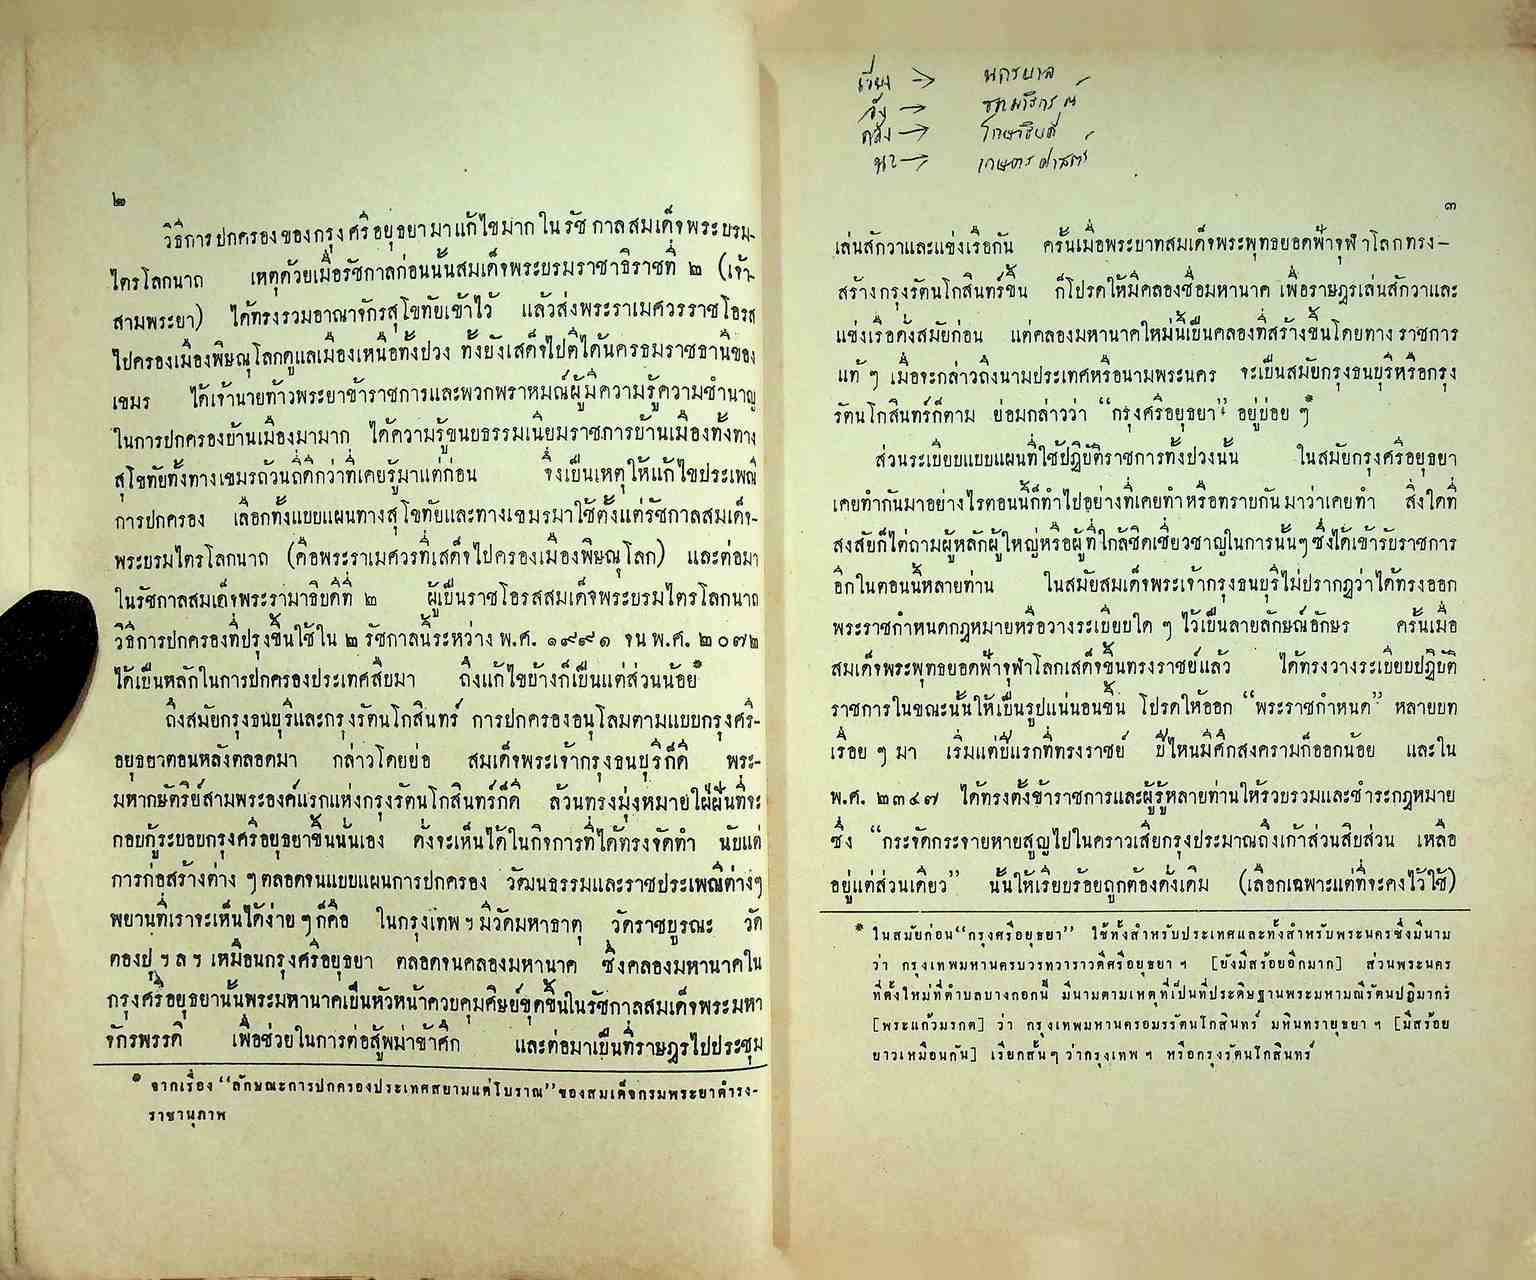 ๒
วิธีการปกครองของกรุงศรีอยุธยามาแก้ไขมากในรัชกาลสมเด็จพระบรม-
ไตรโลกนาถ เหตุด้วยเมื่อรัชกาลก่อนนั้นสมเด็จพระบรมราชาธิราชที่ ๒ (เจ้า-
สามพระยา) ได้ทรงรวมอาณาจักรสุโขทัยเข้าไว้ แล้วส่งพระราเมศวรราชโอรส
ไปครองเมืองพิษณุโลกดูแลเมืองเหนือทั้งปวง ทั้งยังเสด็จไปตีได้นครธมราชธานีของ
เขมร ได้เจ้านายท้าวพระยาข้าราชการและพวกพราหมณ์ผู้มีความรู้ความชำนาญ
ในการปกครองบ้านเมืองมามาก ได้ความรู้ขนบธรรมเนียมราชการบ้านเมืองทั้งทาง
สุโขทัยทั้งทางเขมรถ้วนถี่ดีกว่าที่เคยรู้มาแต่ก่อน จึงเป็นเหตุให้แก้ไขประเพณี
การปกครอง เลือกทั้งแบบแผนทางสุโขทัยและทางเขมรมาใช้ตั้งแต่รัชกาลสมเด็จ-
พระบรมไตรโลกนาถ (คือพระราเมศวรที่เสด็จไปครองเมืองพิษณุโลก) และต่อมา
ในรัชกาลสมเด็จพระรามาธิบดีที่ ๒ ผู้เป็นราชโอรสสมเด็จพระบรมไตรโลกนาถ
วิธีการปกครองที่ปรุงขึ้นใช้ใน ๒ รัชกาลนี้ระหว่าง พ.ศ. ๑๙๙๑ จน พ.ศ. ๒๐๗๒
ได้เป็นหลักในการปกครองประเทศสืบมา ถึงแก้ไขบ้างก็เป็นแต่ส่วนน้อย*
ถึงสมัยกรุงธนบุรีและกรุงรัตนโกสินทร์ การปกครองอนุโลมตามแบบกรุงศรี-
อยุธยาตอนหลังตลอดมา กล่าวโดยย่อ สมเด็จพระเจ้ากรุงธนบุรีก็ดี พระ-
มหากษัตริย์สามพระองค์แรกแห่งกรุงรัตนโกสินทร์ก็ดี ล้วนทรงมุ่งหมายใฝ่ฝันที่จะ
กอบกู้ระบอบกรุงศรีอยุธยาขึ้นนั่นเอง ดั่งจะเห็นได้ในกิจการที่ได้ทรงจัดทำ นับแต่
การก่อสร้างต่าง ๆ ตลอดจนแบบแผนการปกครอง วัฒนธรรมและราชประเพณีต่างๆ
พยานที่เราจะเห็นได้ง่าย ๆ ก็คือ ในกรุงเทพ ฯ มีวัดมหาธาตุ วัดราชบูรณะ วัด
ตองปุ ฯ ล ฯ เหมือนกรุงศรีอยุธยา ตลอดจนคลองมหานาค ซึ่งคลองมหานาคใน
กรุงศรีอยุธยานั้นพระมหานาคเป็นหัวหน้าควบคุมศิษย์ขุดขึ้นในรัชกาลสมเด็จพระมหา
จักรพรรดิ เพื่อช่วยในการต่อสู้พม่าข้าศึก และต่อมาเป็นที่ราษฎรไปประชุม
* จากเรื่อง "ลักษณะการปกครองประเทศสยามแต่โบราณ" ของสมเด็จกรมพระยาดำรง-
ราชานุภาพ
เวียง → นครบาล
วัง → ธรรมาธิกรณ์
คลัง → โกษาธิบดี
นา → เกษตรศาสตร์
๓
เล่นสักวาและแข่งเรือกัน ครั้นเมื่อพระบาทสมเด็จพระพุทธยอดฟ้าจุฬาโลกทรง-
สร้างกรุงรัตนโกสินทร์ขึ้น ก็โปรดให้มีคลองชื่อมหานาค เพื่อราษฎรเล่นสักวาและ
แข่งเรือดั่งสมัยก่อน แต่คลองมหานาคใหม่นี้เป็นคลองที่สร้างขึ้นโดยทางราชการ
แท้ ๆ เมื่อจะกล่าวถึงนามประเทศหรือนามพระนคร จะเป็นสมัยกรุงธนบุรีหรือกรุง
รัตนโกสินทร์ก็ตาม ย่อมกล่าวว่า "กรุงศรีอยุธยา" อยู่บ่อย ๆ*
ส่วนระเบียบแบบแผนที่ใช้ปฏิบัติราชการทั้งปวงนั้น ในสมัยกรุงศรีอยุธยา
เคยทำกันมาอย่างไรตอนนี้ก็ทำไปอย่างที่เคยทำหรือทราบกันมาว่าเคยทำ สิ่งใดที่
สงสัยก็ไต่ถามผู้หลักผู้ใหญ่หรือผู้ที่ใกล้ชิดเชี่ยวชาญในการนั้นๆ ซึ่งได้เข้ารับราชการ
อีกในตอนนี้หลายท่าน ในสมัยสมเด็จพระเจ้ากรุงธนบุรีไม่ปรากฏว่าได้ทรงออก
พระราชกำหนดกฎหมายหรือวางระเบียบใด ๆ ไว้เป็นลายลักษณ์อักษร ครั้นเมื่อ
สมเด็จพระพุทธยอดฟ้าจุฬาโลกเสด็จขึ้นทรงราชย์แล้ว ได้ทรงวางระเบียบปฏิบัติ
ราชการในขณะนั้นให้เป็นรูปแน่นอนขึ้น โปรดให้ออก "พระราชกำหนด" หลายบท
เรื่อย ๆ มา เริ่มแต่ปีแรกที่ทรงราชย์ ปีไหนมีศึกสงครามก็ออกน้อย และใน
พ.ศ. ๒๓๔๗ ได้ทรงตั้งข้าราชการและผู้รู้หลายท่านให้รวบรวมและชำระกฎหมาย
ซึ่ง "กระจัดกระจายหายสูญไปในคราวเสียกรุงประมาณถึงเก้าส่วนสิบส่วน เหลือ
อยู่แต่ส่วนเดียว" นั้นให้เรียบร้อยถูกต้องดั่งเดิม (เลือกเฉพาะแต่ที่จะคงไว้ใช้)
* ในสมัยก่อน "กรุงศรีอยุธยา" ใช้ทั้งสำหรับประเทศและทั้งสำหรับพระนครซึ่งมีนาม
ว่า กรุงเทพมหานครบวรทวาราวดีศรีอยุธยา ฯ [ยังมีสร้อยอีกมาก] ส่วนพระนคร
ที่ตั้งใหม่ที่ตำบลบางกอกนี้ มีนามตามเหตุที่เป็นที่ประดิษฐานพระมหามณีรัตนปฏิมากร
[พระแก้วมรกต] ว่า กรุงเทพมหานครอมรรัตนโกสินทร์ มหินทรายุธยา ฯ [มีสร้อย
ยาวเหมือนกัน] เรียกสั้นๆ ว่ากรุงเทพ ฯ หรือกรุงรัตนโกสินทร์